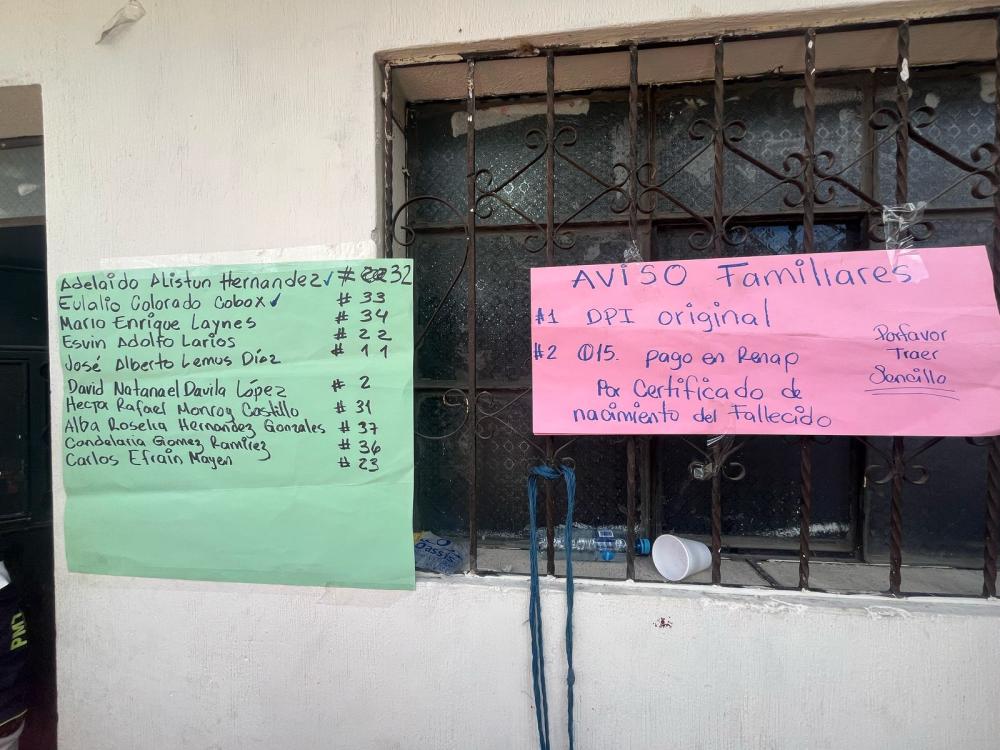 Adelaido Alistun Hernandez✓ # 32
Eulalio Colorado Cobox✓ # 33
Mario Enrique Laynes # 34
Esvin Adolfo Larios # 22
José Alberto Lemus Díaz # 11
David Natanael Davila López # 2
Rafael Monroy Castillo # 31
Alba Roselia Hernandez Gonzales # 37
Candelaria Gomez Ramirez # 36
Carlos Efrain Mayen # 23
AVISO Familiares
#1 DPI original
#2 Q15. pago en Renap
Por Certificado de
nacimiento del Fallecido
Porfavor
Traer
Sencillo
PMT